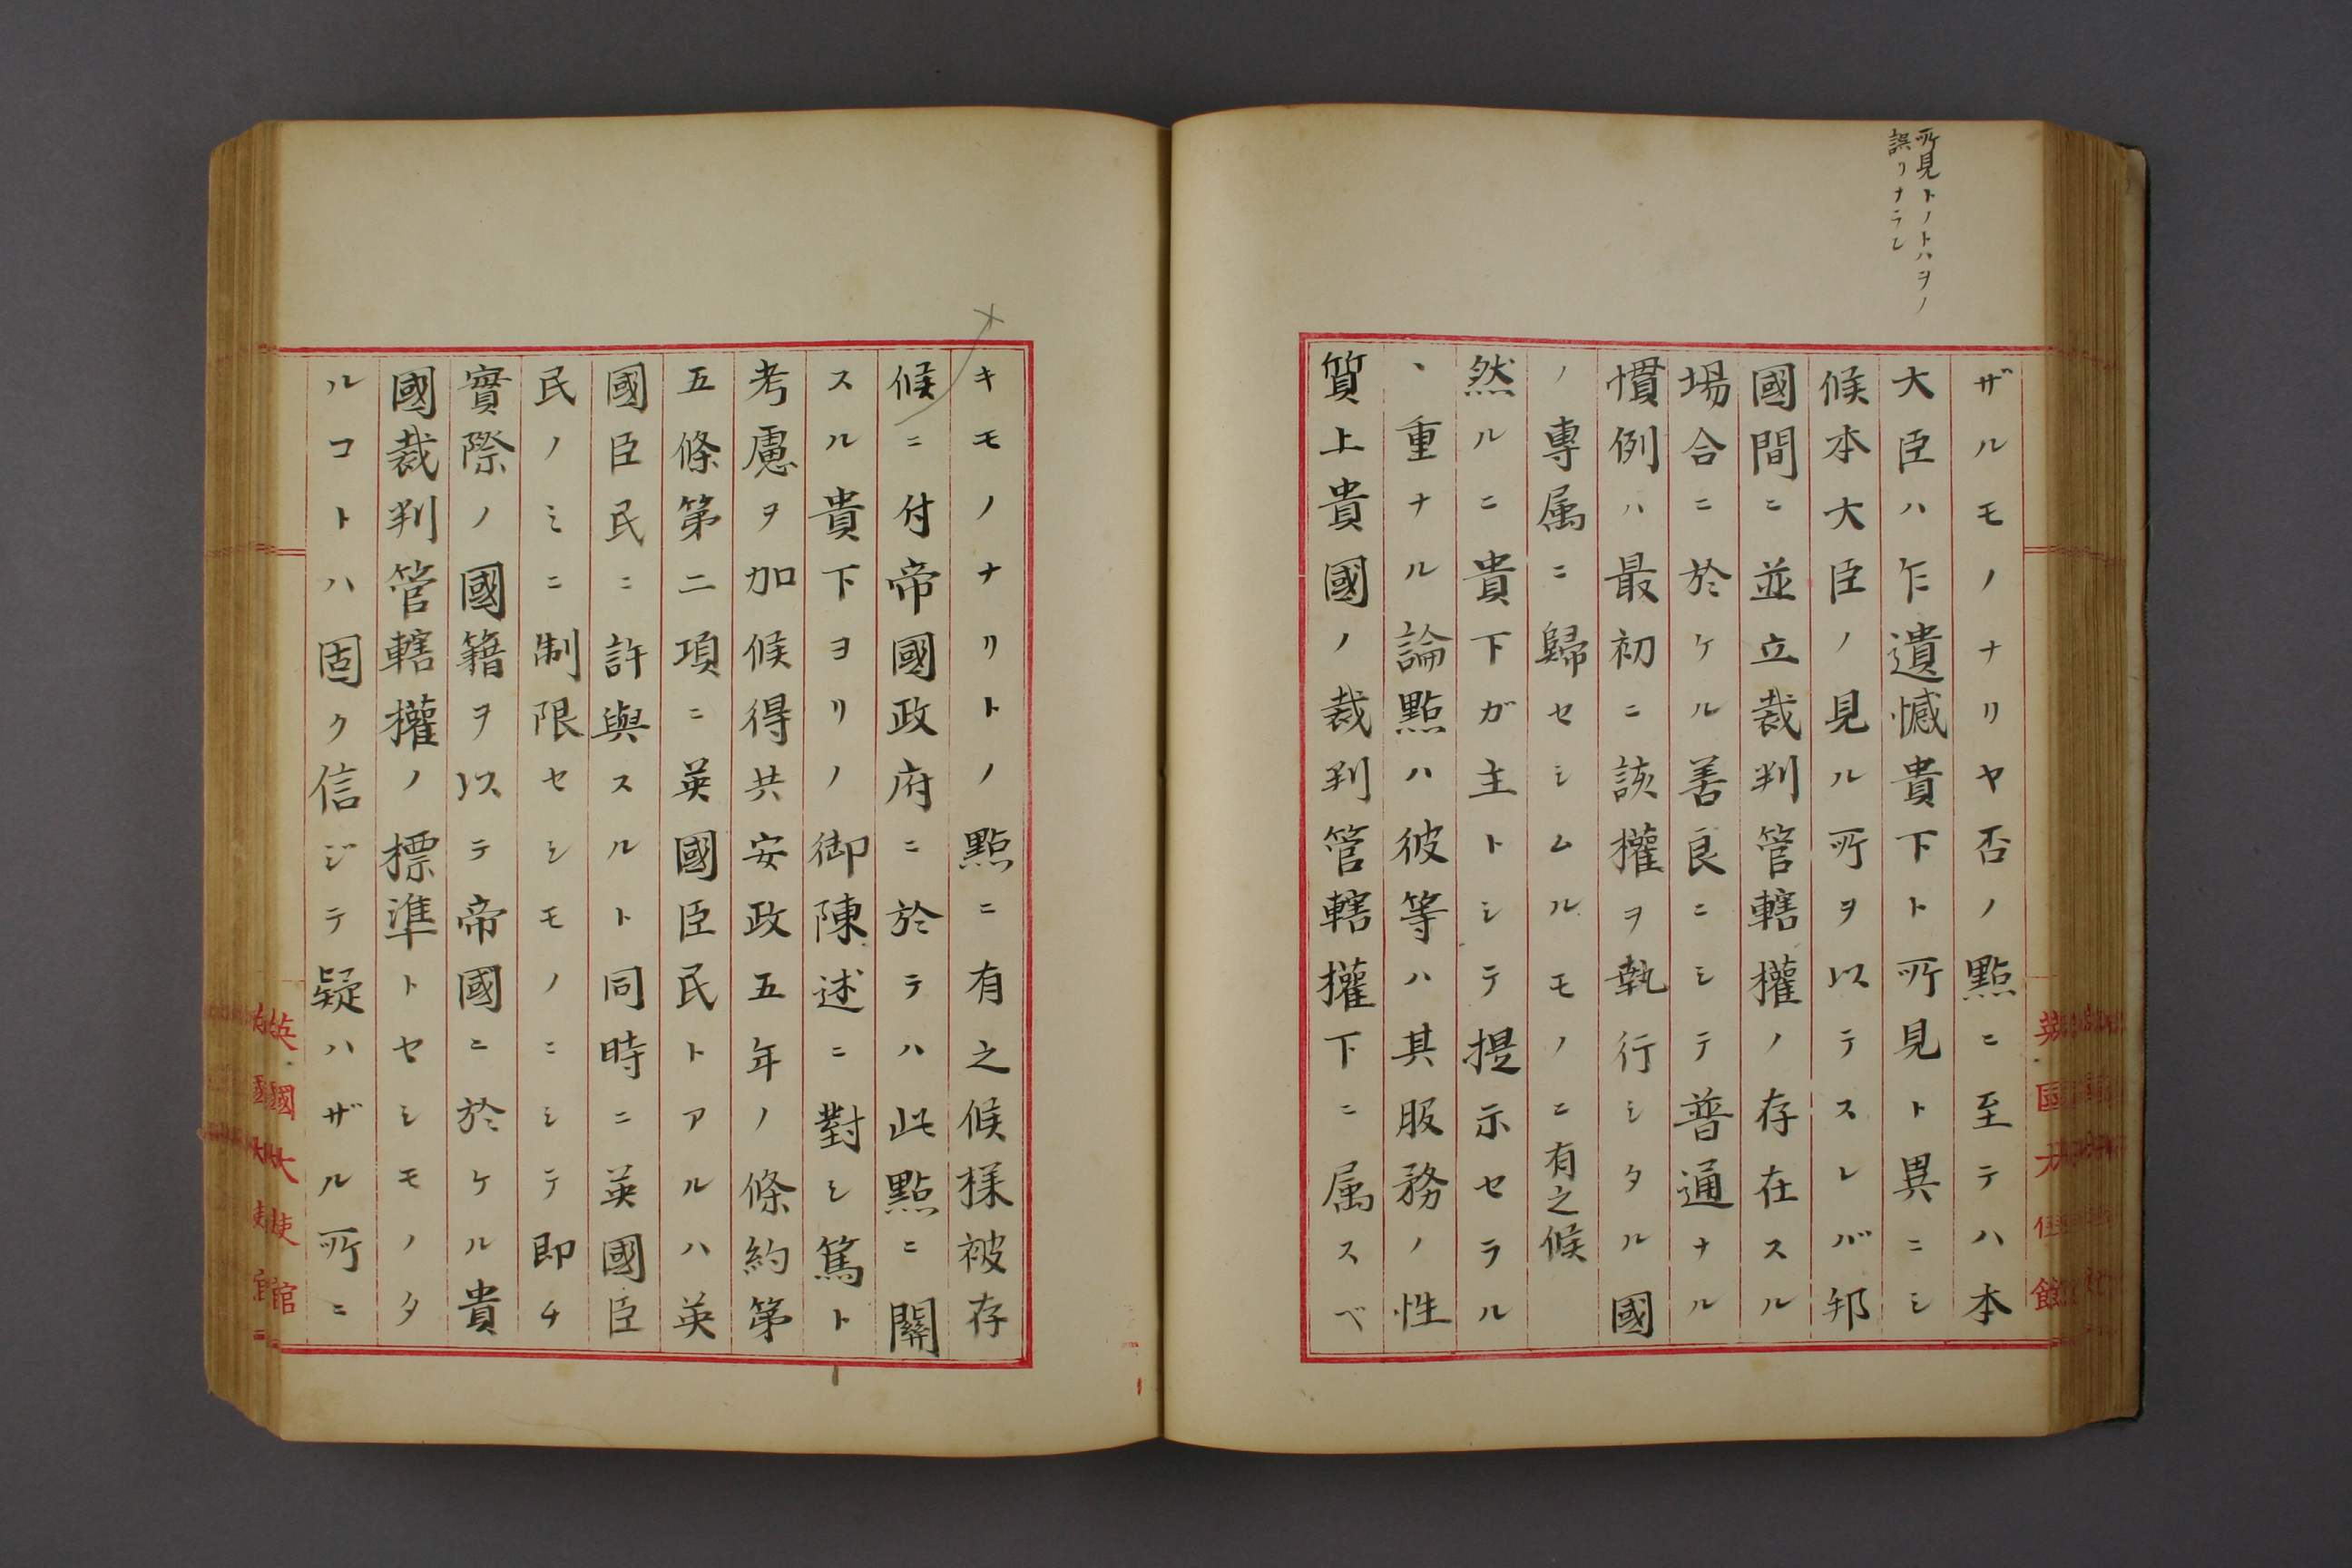 所見トノトハヲノ
誤リナラン
ザルモノナリヤ否ノ點ニ至テハ本
大臣ハ乍遺憾貴下ト所見ト異ニシ
候本大臣ノ見ル所ヲ以テスレバ邦
國間ニ並立裁判管轄權ノ存在スル
場合ニ於ケル善良ニシテ普通ナル
慣例ハ最初ニ該權ヲ執行シタル國
ノ專属ニ歸セシムルモノニ有之候
然ルニ貴下ガ主トシテ提示セラル
、重ナル論點ハ彼等ハ其服務ノ性
質上貴國ノ裁判管轄權下ニ属スベ
英國大使館
キモノナリトノ點ニ有之候様被存
候ニ付帝國政府ニ於テハ此點ニ關
スル貴下ヨリノ御陳述ニ對シ篤ト
考慮ヲ加候得共安政五年ノ條約第
五條第二項ニ英國臣民トアルハ英
國臣民ニ許與スルト同時ニ英國臣
民ノミニ制限セシモノニシテ即チ
實際ノ國籍ヲ以テ帝國ニ於ケル貴
國裁判管轄權ノ標準トセシモノタ
ルコトハ固ク信ジテ疑ハザル所ニ
英國大使館